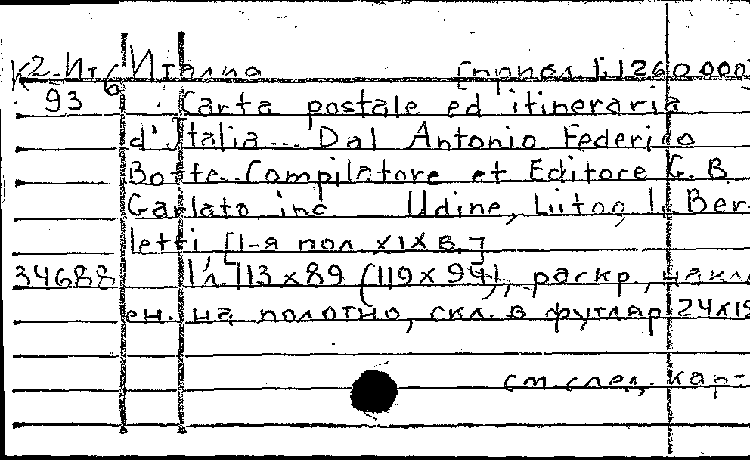 К2-Ит6 Италия [прибл 1:1260000]
93 Carta postale ed itineraria
d'Italia... Dal Antonio Federico
Botte Compilatore et Editore G. B.
Garlato inc Udine, Litog. Ber-
letti, [1-я пол XIX в.]
34688 1л 113x89 (119x94), раскр., накле
ен. на полотно, скл. в футляр 24x15
см. след. кар-